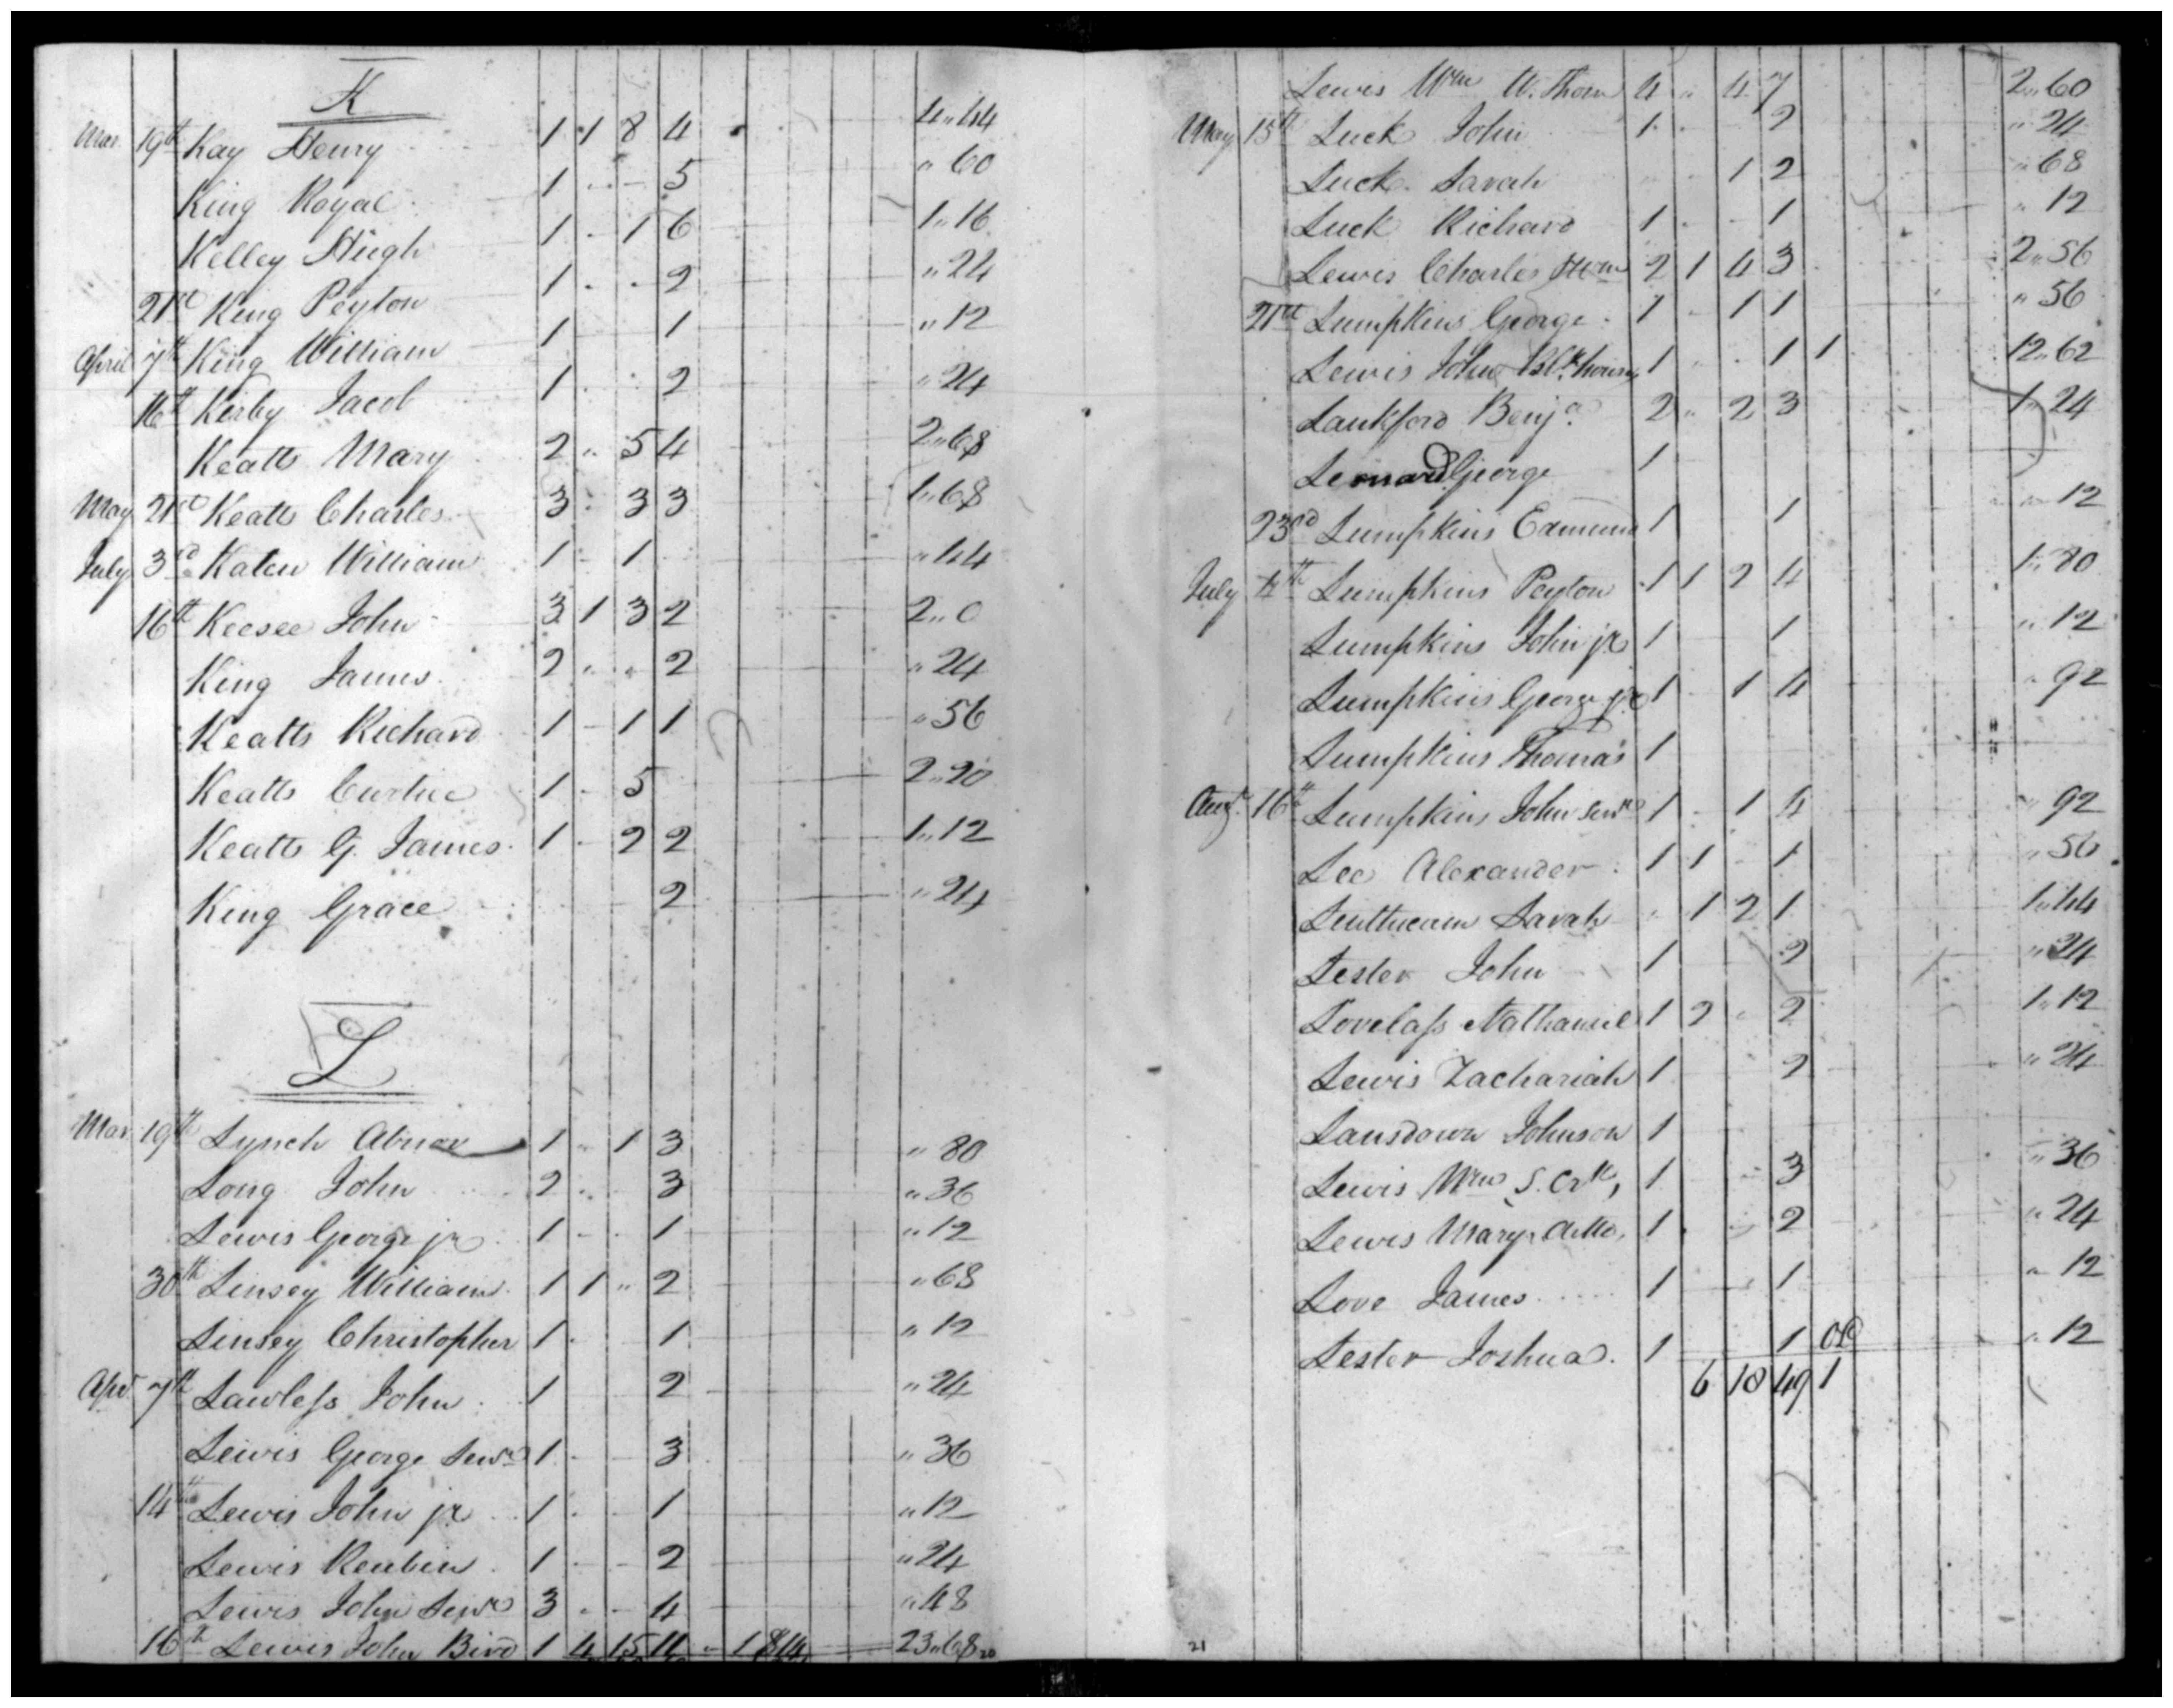 K
Mar. 19th Kay Henry 1 1 8 4 4"44
King Royal 1 " - 5 " 60
Kelley Hugh 1 - 1 6 1"16
21st King Peyton 1 - - 2 " 24
April 7th King William 1 1 " 12
16th Kerby Jacob 1 - - 2 " 24
Keatts Mary 2 " 5 4 2"68
May 21st Keatts Charles 3 - 3 3 1"68
July 3d Katen William 1 - 1 " 44
16th Keesee John 3 1 3 2 2"0
King James 2 " " 2 " 24
Keatts Richard 1 - 1 1 " 56
Keatts Curtice 1 - 5 2"20
Keatts G. James 1 - 2 2 1"12
King Grace 2 " 24
L
Mar. 19th Lynch Abner 1 " 1 3 " 80
Long John 2 " 3 " 36
Lewis George jr 1 - - 1 " 12
30th Linsey William 1 1 " 2 " 68
Linsey Christopher 1 - 1 " 12
Apr. 7th Lawless John 1 2 " 24
Lewis George Senr 1 - 3 " 36
14th Lewis John jr 1 - 1 " 12
Lewis Reubin 1 - - 2 " 24
Lewis John Senr 3 - - 4 " 48
16th Lewis John Bird 1 4 15 11 " 1 84 23"68
Lewis Wm W. Thom 4 " 4 7 2"60
May 15th Luck John 1 - 2 " 24
Luck Sarah 1 2 " 68
Luck Richard 1 - - 1 " 12
Lewis Charles 2 1 4 3 2"56
21st Lumpkins George 1 - 1 1 " 56
Lewis John 1 - - 1 1 12"62
Lankford Benja. 2 " 2 3 1"24
Leonard George 1
23d Lumpkins Edmund 1 1 " 12
July 4th Lumpkins Peyton 1 1 2 4 1"80
Lumpkins John jr 1 1 " 12
Lumpkins George jr 1 - 1 4 " 92
Lumpkins Thomas 1
Aug. 16th Lumpkins John Senr 1 - 1 4 " 92
Lee Alexander 1 1 - 1 " 56
Sarah " 1 2 1 1"44
Lester John 1 2 " 24
Lovelass Nathaniel 1 2 - 2 1"12
Lewis Zachariah 1 2 " 24
Lansdown Johnson 1
Lewis Wm S. Crk, 1 - 3 " 36
Lewis Mary ditto, 1 - - 2 " 24
Love James 1 - 1 " 12
Lester Joshua 1 1 " 12
6 18 49 1
21